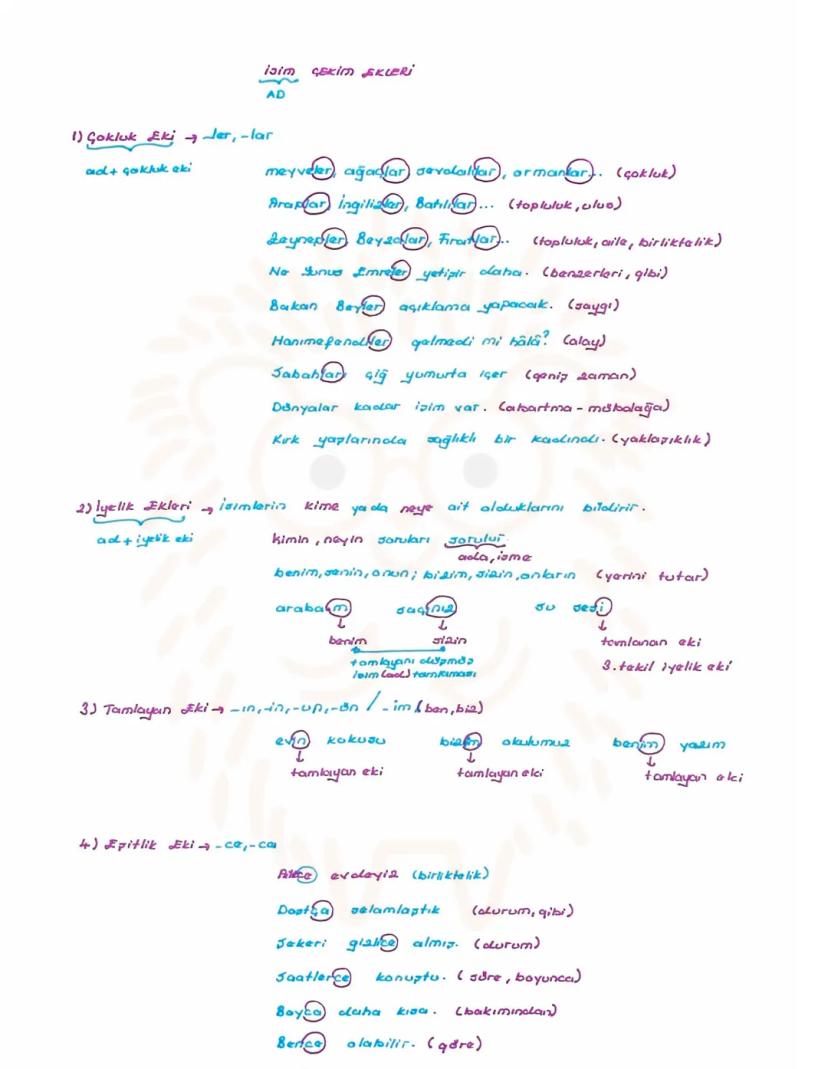 İSİM ÇEKİM EKLERİ
AD
1) Çokluk Eki → -ler, -lar
ad + çokluk eki
meyveler, ağaçlar, sevdalılar, ormanlar... (çokluk)
Araplar, İngilizler, Batılılar... (topluluk, ulus)
Zeynepler, Beyzalar, Fıratlar... (topluluk, aile, birliktelik)
Ne Yunus Emreler yetişir daha. (benzerleri, gibi)
Bakan Beyler açıklama yapacak. (saygı)
Hanımefendiler gelmedi mi hâlâ? (alay)
Sabahları çiğ yumurta içer (geniş zaman)
Dünyalar kadar işim var. (abartma - mübalağa)
Kırk yaşlarında sağlıklı bir kadındı. (yaklaşıklık)
2) İyelik Ekleri → isimlerin kime ya da neye ait olduklarını bildirir.
ad + iyelik eki
kimin, neyin soruları sorulur
ada, isme
benim, senin, onun; bizim, sizin, onların (yerini tutar)
arabam saçınız su sesi
benim sizin tamlanan eki
tamlayanı düşmüş
isim (ad) tamlaması
3. tekil iyelik eki
3) Tamlayan Eki → -ın, -in, -un, -ün / -im (ben, biz)
evin kokusu bizim okulumuz benim yazım
tamlayan eki tamlayan eki tamlayan eki
4) Eşitlik Eki → -ce, -ca
Ailece evdeyiz (birliktelik)
Dostça selamlaştık (durum, gibi)
Şekeri gizlice almış. (durum)
Saatlerce konuştu. (süre, boyunca)
Boyca daha kısa. (bakımından)
Bence olabilir. (göre)